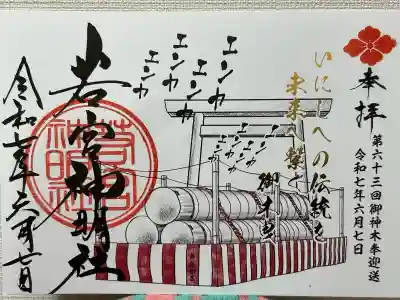 奉拝
第六十三回御神木奉迎送
令和七年六月七日
いにしへの伝統を
未来へ繋ぐ
エンヤ
エンヤ
エンヤ
エンヤ
エンヤ
エンヤ
エンヤ
エンヤ
若宮神明社
若宮神明社
令和七年六月七日